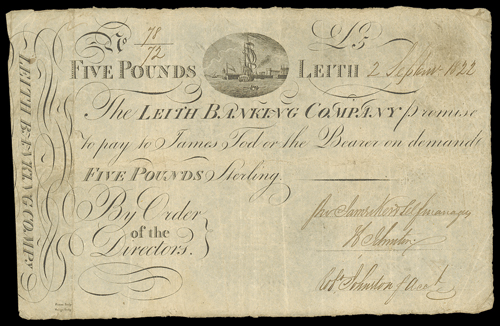 No 78/72 £5
FIVE POUNDS LEITH 2 Septemr 1822
The LEITH BANKING COMPANY promise
to pay to James Tod or the Bearer on demand
FIVE POUNDS Sterling.
By Order
of the
Directors.
manager
H Johnston
Johnston Acctt
LEITH BANKING COMPY